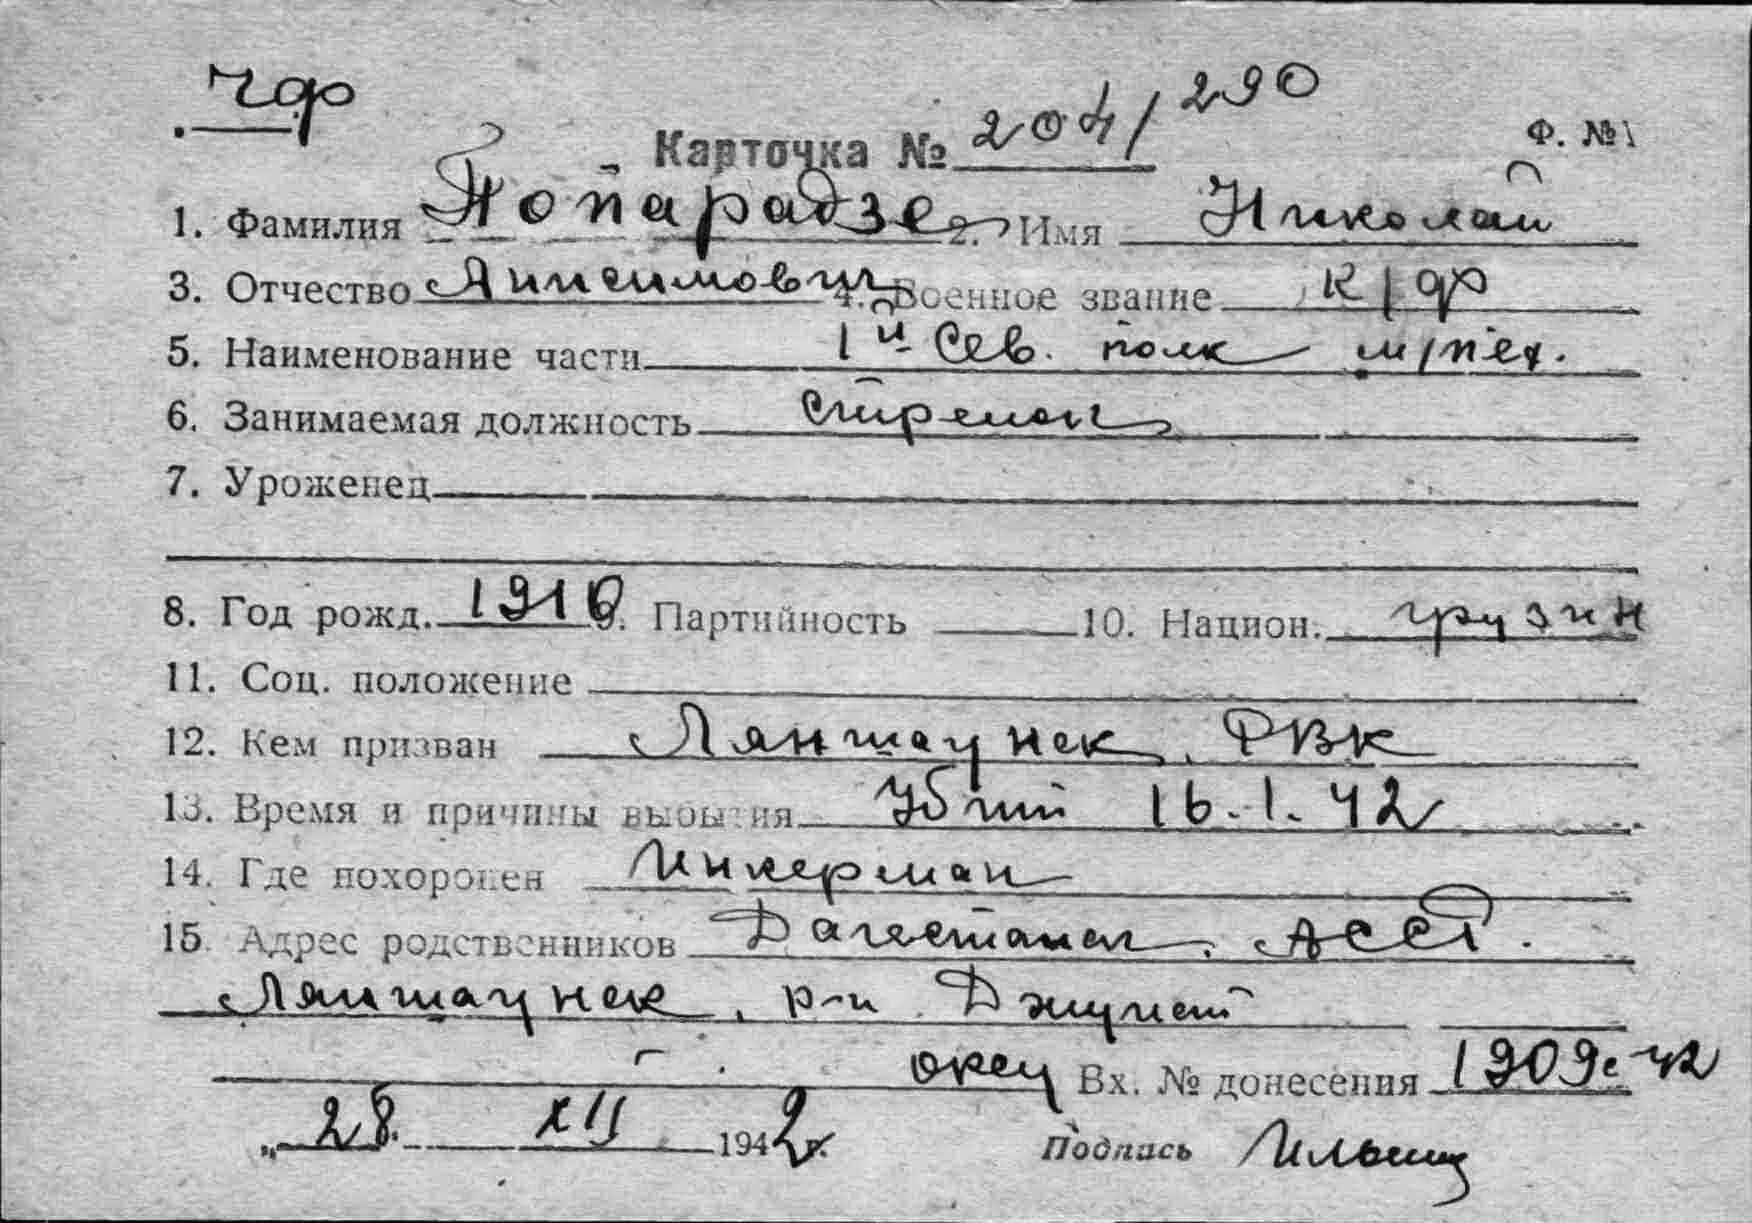 чф
Карточка № 204/290
Ф. №1
1. Фамилия Попарадзе 2. Имя Николай
3. Отчество Анисимович 4. Военное звание к/ф
5. Наименование части 1й Сев. полк м/пех.
6. Занимаемая должность стрелок
7. Уроженец
8. Год рожд. 1910 9. Партийность 10. Национ. грузин
11. Соц. положение
12. Кем призван РВК
13. Время и причины выбытия Убит 16.1.42
14. Где похоронен Инкерман
15. Адрес родственников Дагестанск. АССР.
р-н
Вх. № донесения 1909с 42
„28. XII 1942г.
Подпись